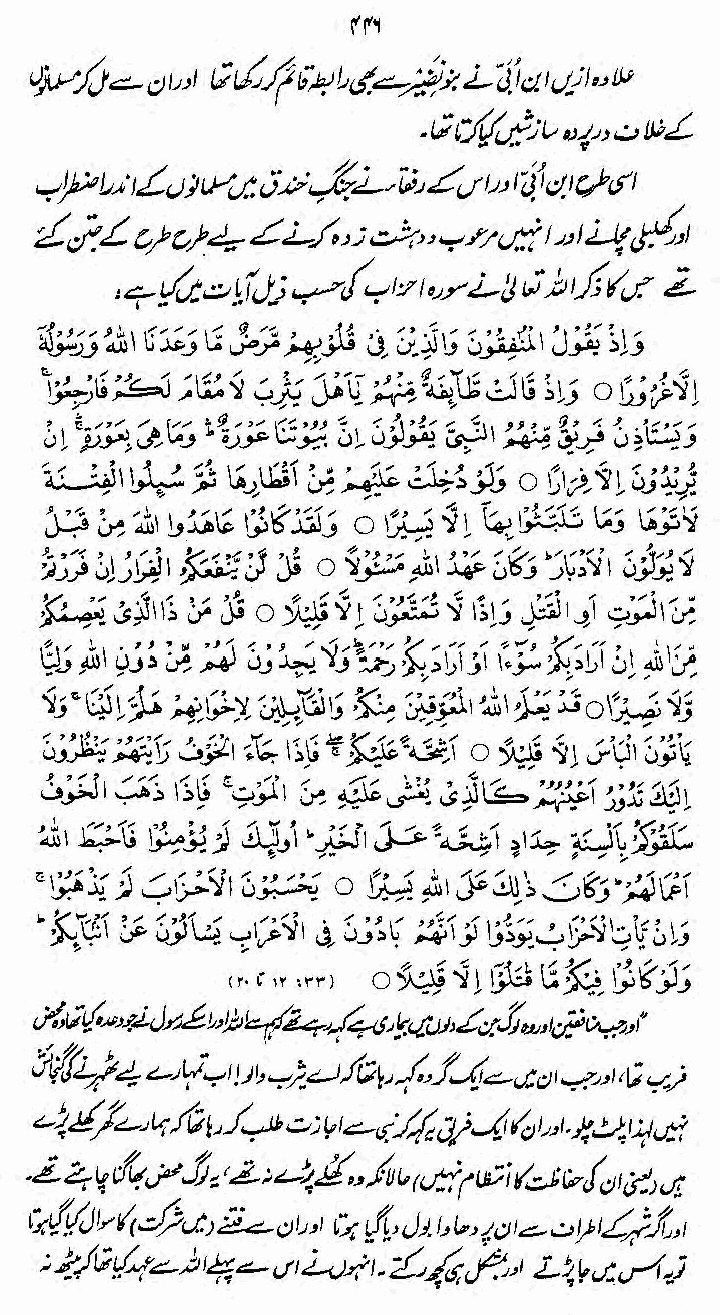 ۴۴۶
علاوہ ازیں ابن اُبَیّ نے بنو نضیر سے بھی رابطہ قائم کر رکھا تھا اور ان سے مل کر مسلمانوں
کے خلاف درپردہ سازشیں کیا کرتا تھا۔
اسی طرح ابن اُبَیّ اور اس کے رفقاء نے جنگِ خندق میں مسلمانوں کے اندر اضطراب
اور کھلبلی مچانے اور انہیں مرعوب و دہشت زدہ کرنے کے لیے طرح طرح کے جتن کئے
تھے جس کا ذکر اللہ تعالیٰ نے سورہ احزاب کی حسب ذیل آیات میں کیا ہے:
وَاِذْ يَقُوْلُ الْمُنٰفِقُوْنَ وَالَّذِيْنَ فِىْ قُلُوْبِهِمْ مَّرَضٌ مَّا وَعَدَنَا اللهُ وَرَسُوْلُهٗٓ
اِلَّا غُرُوْرًا ○ وَاِذْ قَالَتْ طَّآئِفَةٌ مِّنْهُمْ يٰٓاَهْلَ يَثْرِبَ لَا مُقَامَ لَكُمْ فَارْجِعُوْا ۚ
وَيَسْتَاْذِنُ فَرِيْقٌ مِّنْهُمُ النَّبِىَّ يَقُوْلُوْنَ اِنَّ بُيُوْتَنَا عَوْرَةٌ ۛ وَمَا هِىَ بِعَوْرَةٍ ۛ اِنْ
يُّرِيْدُوْنَ اِلَّا فِرَارًا ○ وَلَوْ دُخِلَتْ عَلَيْهِمْ مِّنْ اَقْطَارِهَا ثُمَّ سُئِلُوا الْفِتْنَةَ
لَاٰتَوْهَا وَمَا تَلَبَّثُوْا بِهَآ اِلَّا يَسِيْرًا ○ وَلَقَدْ كَانُوْا عَاهَدُوا اللهَ مِنْ قَبْلُ
لَا يُوَلُّوْنَ الْاَدْبَارَ ؕ وَكَانَ عَهْدُ اللهِ مَسْئُوْلًا ○ قُلْ لَّنْ يَّنْفَعَكُمُ الْفِرَارُ اِنْ فَرَرْتُمْ
مِّنَ الْمَوْتِ اَوِ الْقَتْلِ وَاِذًا لَّا تُمَتَّعُوْنَ اِلَّا قَلِيْلًا ○ قُلْ مَنْ ذَا الَّذِىْ يَعْصِمُكُمْ
مِّنَ اللهِ اِنْ اَرَادَ بِكُمْ سُوْٓءًا اَوْ اَرَادَ بِكُمْ رَحْمَةً ؕ وَلَا يَجِدُوْنَ لَهُمْ مِّنْ دُوْنِ اللهِ وَلِيًّا
وَّلَا نَصِيْرًا ○ قَدْ يَعْلَمُ اللهُ الْمُعَوِّقِيْنَ مِنْكُمْ وَالْقَآئِلِيْنَ لِاِخْوَانِهِمْ هَلُمَّ اِلَيْنَا ۚ وَلَا
يَاْتُوْنَ الْبَاْسَ اِلَّا قَلِيْلًا ○ اَشِحَّةً عَلَيْكُمْ ۖ فَاِذَا جَآءَ الْخَوْفُ رَاَيْتَهُمْ يَنْظُرُوْنَ
اِلَيْكَ تَدُوْرُ اَعْيُنُهُمْ كَالَّذِىْ يُغْشٰى عَلَيْهِ مِنَ الْمَوْتِ ۚ فَاِذَا ذَهَبَ الْخَوْفُ
سَلَقُوْكُمْ بِاَلْسِنَةٍ حِدَادٍ اَشِحَّةً عَلَى الْخَيْرِ ؕ اُولٰٓئِكَ لَمْ يُؤْمِنُوْا فَاَحْبَطَ اللهُ
اَعْمَالَهُمْ ؕ وَكَانَ ذٰلِكَ عَلَى اللهِ يَسِيْرًا ○ يَحْسَبُوْنَ الْاَحْزَابَ لَمْ يَذْهَبُوْا ۚ
وَاِنْ يَّاْتِ الْاَحْزَابُ يَوَدُّوْا لَوْ اَنَّهُمْ بَادُوْنَ فِى الْاَعْرَابِ يَسْاَلُوْنَ عَنْ اَنْۢبَآئِكُمْ ؕ
وَلَوْ كَانُوْا فِيْكُمْ مَّا قٰتَلُوْٓا اِلَّا قَلِيْلًا ○ (۳۳: ۱۲ تا ۲۰)
"اور جب منافقین اور وہ لوگ جن کے دلوں میں بیماری ہے کہہ رہے تھے کہ ہم سے اللہ اور اسکے رسول نے جو وعدہ کیا تھا وہ محض
فریب تھا، اور جب ان میں سے ایک گروہ کہہ رہا تھا کہ اے یثرب والو! اب تمہارے لیے ٹھہرنے کی گنجائش
نہیں لہذا پلٹ چلو۔ اور ان کا ایک فریق یہ کہہ کر نبی سے اجازت طلب کر رہا تھا کہ ہمارے گھر کھلے پڑے
ہیں (یعنی ان کی حفاظت کا انتظام نہیں) حالانکہ وہ کھلے پڑے نہ تھے، یہ لوگ محض بھاگنا چاہتے تھے۔
اور اگر شہر کے اطراف سے ان پر دھاوا بول دیا گیا ہوتا اور ان سے فتنے (میں شرکت) کا سوال کیا گیا ہوتا
تو یہ اس میں جا پڑتے اور بمشکل ہی کچھ رکتے۔ انہوں نے اس سے پہلے اللہ سے عہد کیا تھا کہ پیٹھ نہ